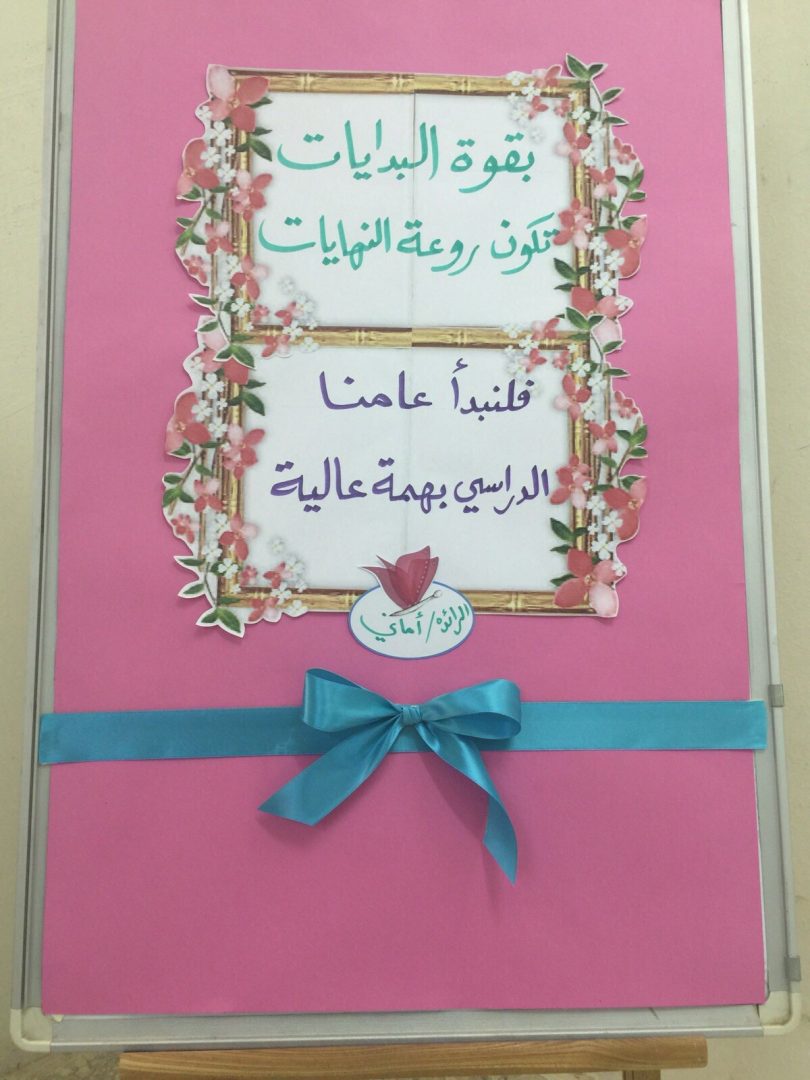 بقوة البدايات
تَكون روعة النهايات
فلنبدأ عامنا
الدراسي بهمة عالية
الرائدة/أماني